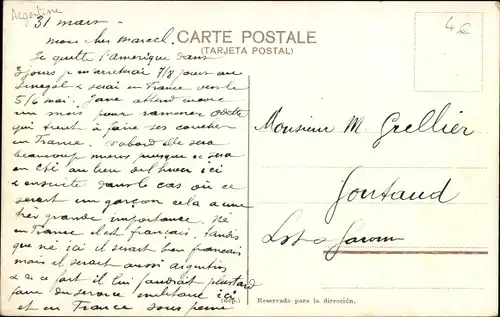 Argentine
4€
31 mars
mon cher Marcel.
CARTE POSTALE
(TARJETA POSTAL)
Je quitte l'Amérique dans
3 jours je m'arreterai 7/8 jours au
Sénégal & serai en France vers le
5/6 mai. Jane attend encore
un mois pour ramener Odette
qui tient à faire ses couches
en France. D'abord elle sera
beaucoup mieux puisque ce sera
en été au lieu del'hiver ici
& ensuite dans le cas où ce
serait un garçon cela a une
très grande importance. Né
en France il est français. tandis
que né ici il serait bien français
mais il serait aussi argentin
& de ce fait il lui faudrait plus tard
faire du service militaire ici
et en France sous peine
Monsieur M. Grellier
Lot & Garonne
Reservado para la dirección.